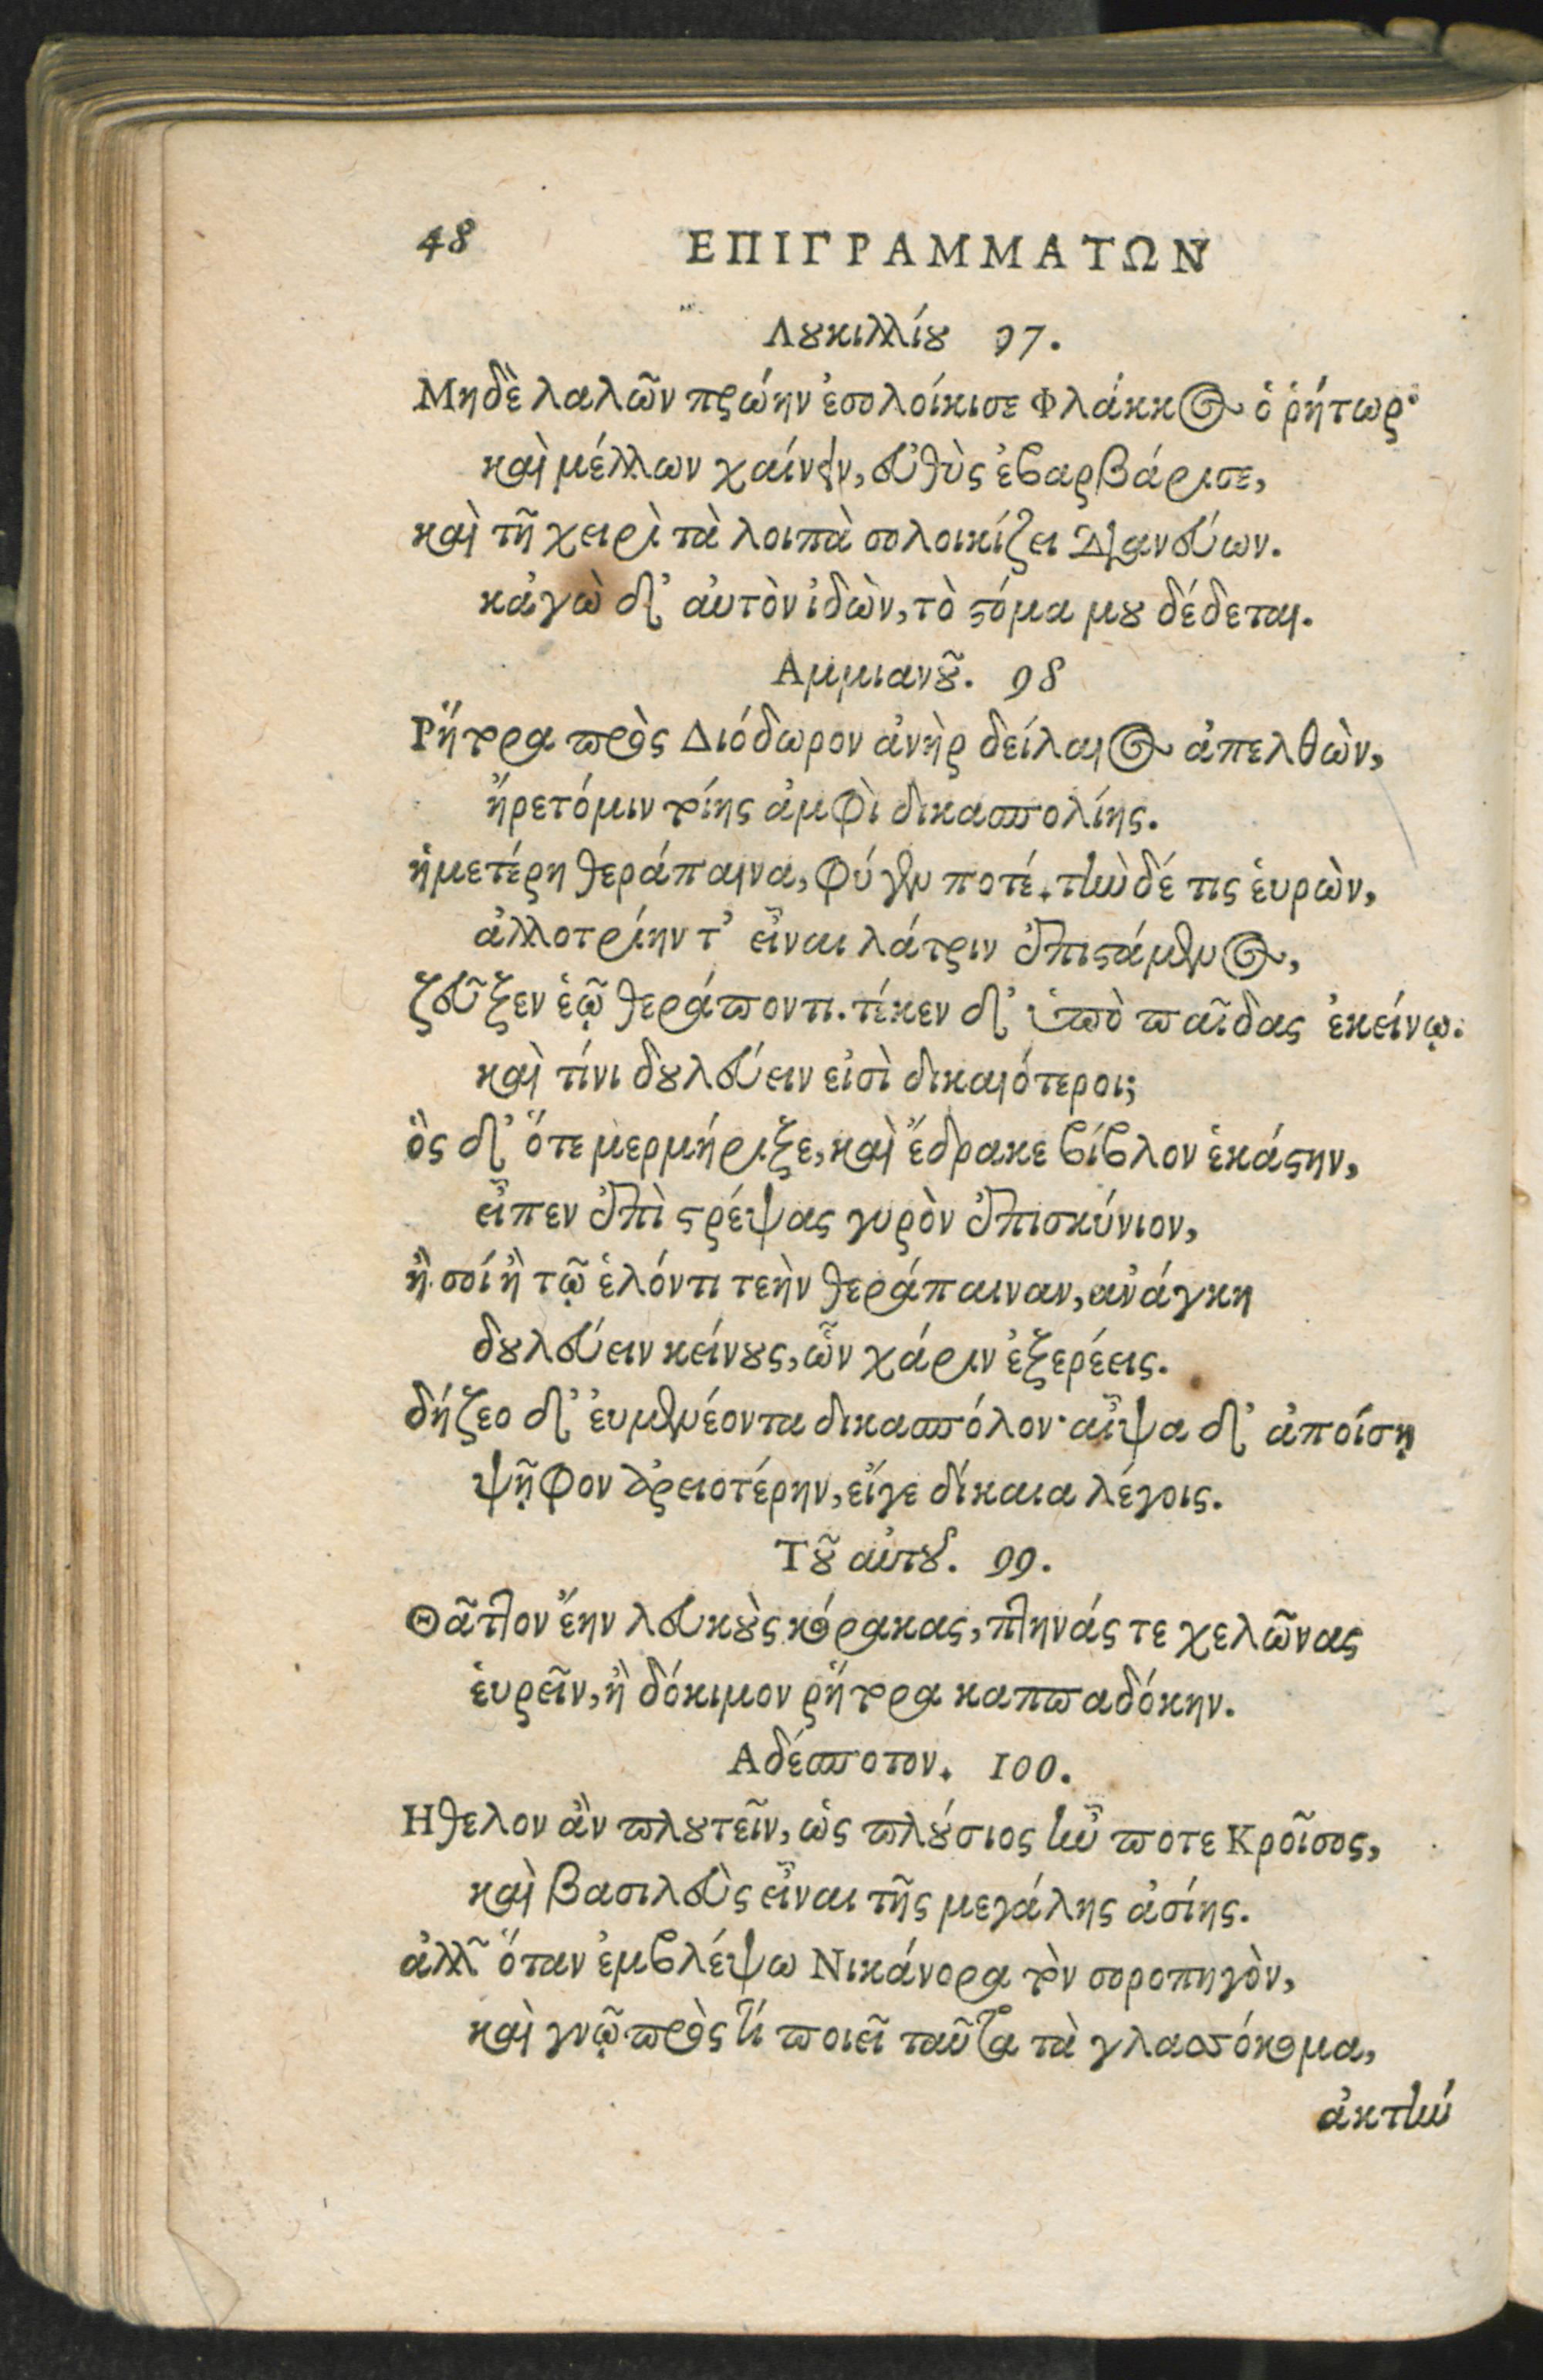 48 ΕΠΙΓΡΑΜΜΑΤΩΝ
Λουκιλλίου 97.
Μηδὲ λαλῶν πρώην ἐσολοίκισε Φλάκκος ὁ ῥήτωρ·
καὶ μέλλων χαίνειν, εὐθὺς ἐβαρβάρισε,
καὶ τῇ χειρὶ τὰ λοιπὰ σολοικίζει διανεύων.
κἀγὼ δ' αὐτὸν ἰδὼν, τὸ στόμα μου δέδεται.
Αμμιανοῦ. 98
Ρήτορα πρὸς Διόδωρον ἀνὴρ δείλαιος ἀπελθὼν,
ἤρετό μιν τοίης ἀμφὶ δικασπολίης.
ἡμετέρη θεράπαινα, φύγεν ποτέ. τὴν δέ τις εὑρὼν,
ἀλλοτρίην τ' εἶναι λάτριν ἐπιστάμενος,
ζεῦξεν ἑῷ θεράποντι. τέκεν δ' ὑπὸ παῖδας ἐκείνῳ.
καὶ τίνι δουλεύειν εἰσὶ δικαιότεροι;
ὃς δ' ὅτε μερμήριξε, καὶ ἔδρακε βίβλον ἑκάστην,
εἶπεν ἐπὶ στρέψας γυρὸν ἐπισκύνιον,
ἢ σοί ἢ τῷ ἑλόντι τεὴν θεράπαιναν, ἀνάγκη
δουλεύειν κείνους, ὧν χάριν ἐξερέεις.
δήζεο δ' εὐμενέοντα δικασπόλον· αἶψα δ' ἀποίσῃ
ψῆφον ἀρειοτέρην, εἴγε δίκαια λέγοις.
Τοῦ αὐτοῦ. 99.
Θᾶττον ἔην λευκοὺς κόρακας, πτηνάς τε χελώνας
εὑρεῖν, ἢ δόκιμον ῥήτορα καππαδόκην.
Αδέσποτον. 100.
Ηθελον ἂν πλουτεῖν, ὡς πλούσιος ἦν ποτε Κροῖσος,
καὶ βασιλεὺς εἶναι τῆς μεγάλης ἀσίης.
ἀλλ' ὅταν ἐμβλέψω Νικάνορα τὸν σοροπηγὸν,
καὶ γνῶ πρὸς τί ποιεῖ ταῦτα τὰ γλωσσόκομα,
ἀκτήν